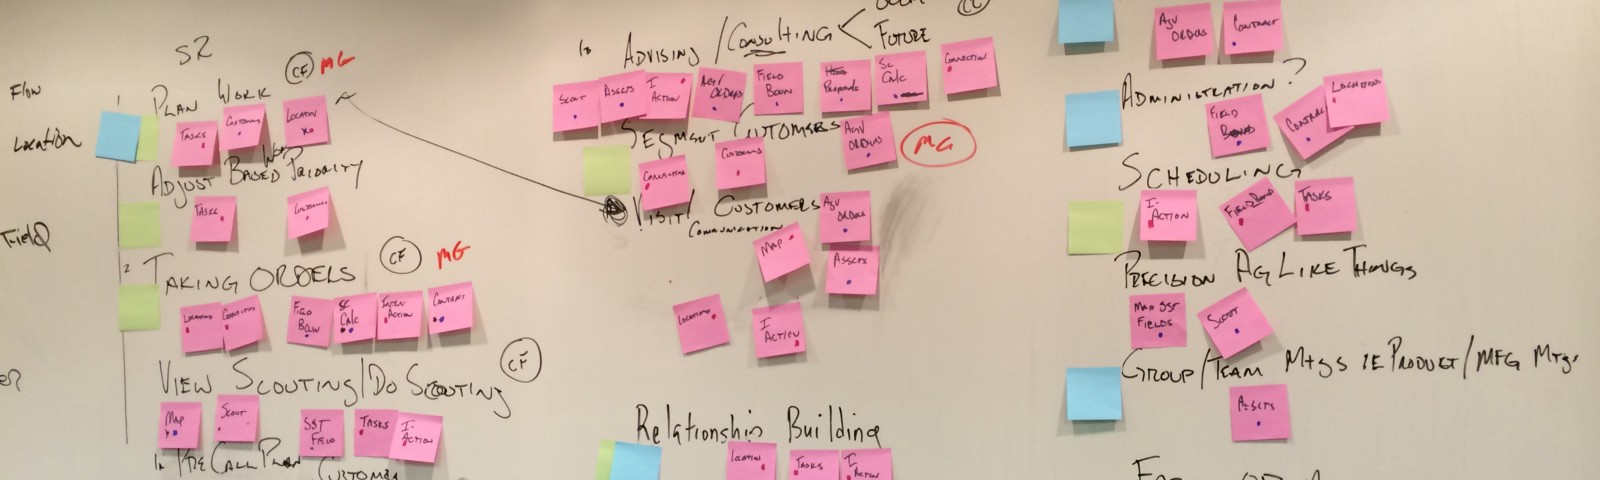 Flow
Location
Field
SR
PLAN WORK
CF
MG
TASKS
CUSTOMERS
LOCATION
ADJUST BASED PRIORITY
WORK
TASKS
CUSTOMERS
2 TAKING ORDERS
CF
MG
LOCATION
FIELD
BOUN
SC
CALC
INTER
ACTION
CONTRACT
VIEW SCOUTING/DO SCOUTING
CF
MAP
SCOUT
SST
FIELD
TASKS
I-
ACTION
PRE CALL PLAN
CUSTOMER
ADVISING/CONSULTING
FUTURE
SCOUT
ASSETS
I
ACTION
AGV/
ORDERS
FIELD
BOUN
Proposals
SC
CALC
CONNECTION
SEGMENT CUSTOMERS
CUSTOMERS
AGV
ORDERS
MG
VISIT/ CUSTOMERS
COMMUNICATION
AGV
ORDERS
MAP
ASSETS
LOCATION
I
ACTION
Relationship Building
LOCATION
TASKS
I
ACTION
AGV
ORDERS
CONTRACT
ADMINISTRATION?
FIELD
CONTRACT
LOCATIONS
SCHEDULING
I-
ACTION
FIELD BOUND
TASKS
PRECISION AG LIKE THINGS
MAP SST
FIELDS
SCOUT
GROUP/TEAM MTGS IE PRODUCT/MFG MTGS
ASSETS